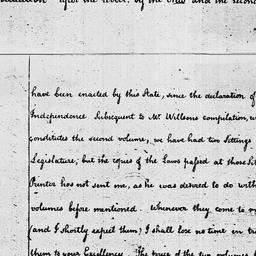 after the other, by the and the second
have been enacted by this State, since the declaration of
Independence Subsequent to Mr. Willsons compilation, w
constitutes the second volume, we have had two Sittings
Legislature; but the copies of the Laws passed at those Sit
Printer has not sent me, as he was desired to do with
volumes before mentioned. Whenever they come to m
(and I shortly expect them) I shall lose no time in tr
them to your Excellency. The two volumes